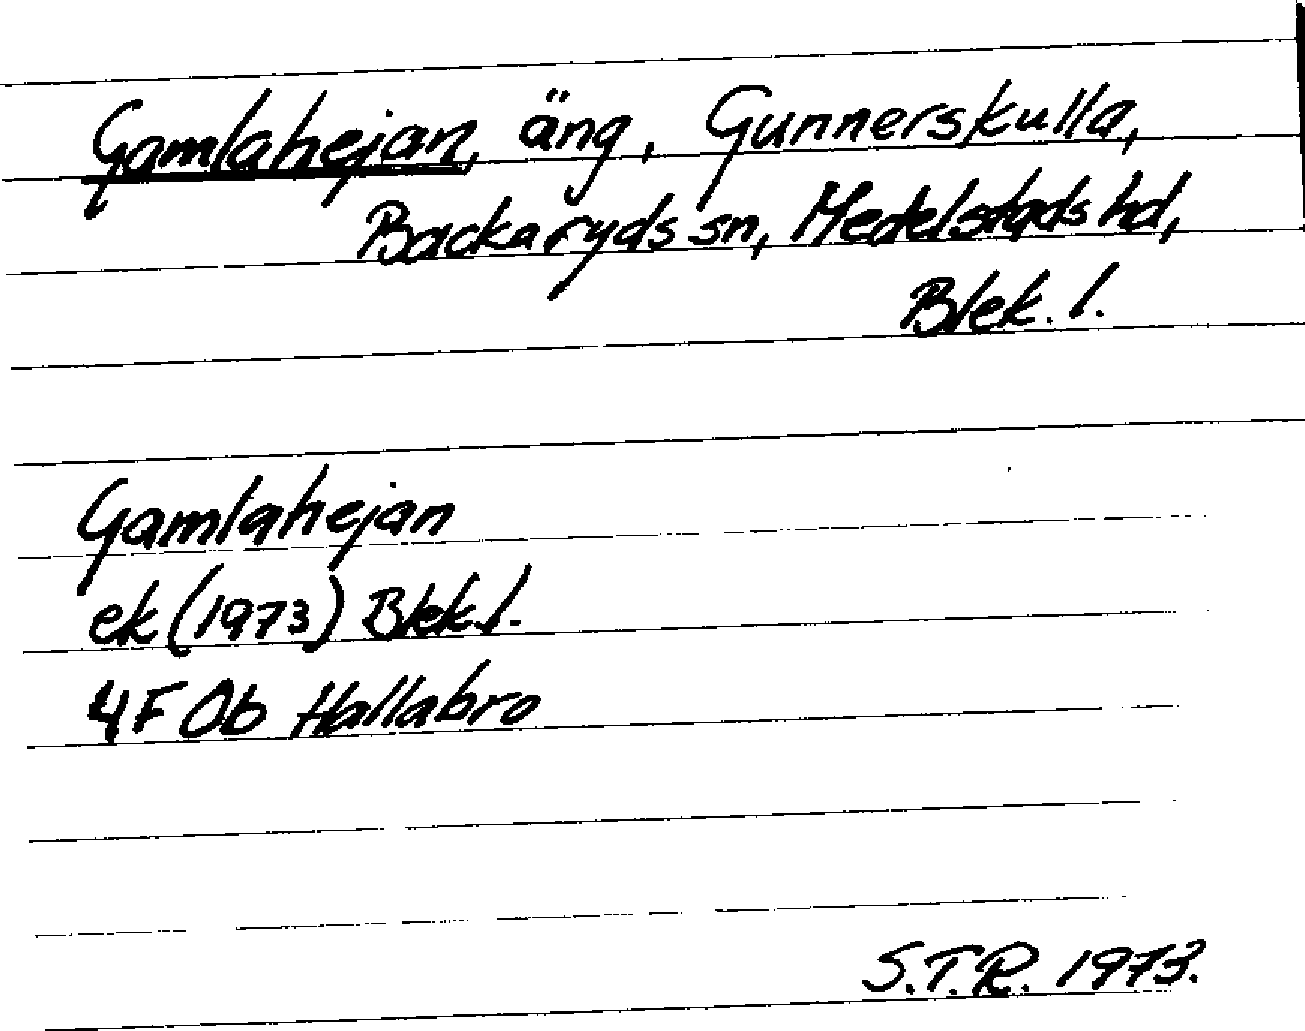 Gamlahejan, äng, Gunnerskulla,
Backaryds sn, Medelstads hd,
Blek. l.
Gamlahejan
ek (1973) Blek. l.
4F Ob Hallabro
S.T.R. 1973.